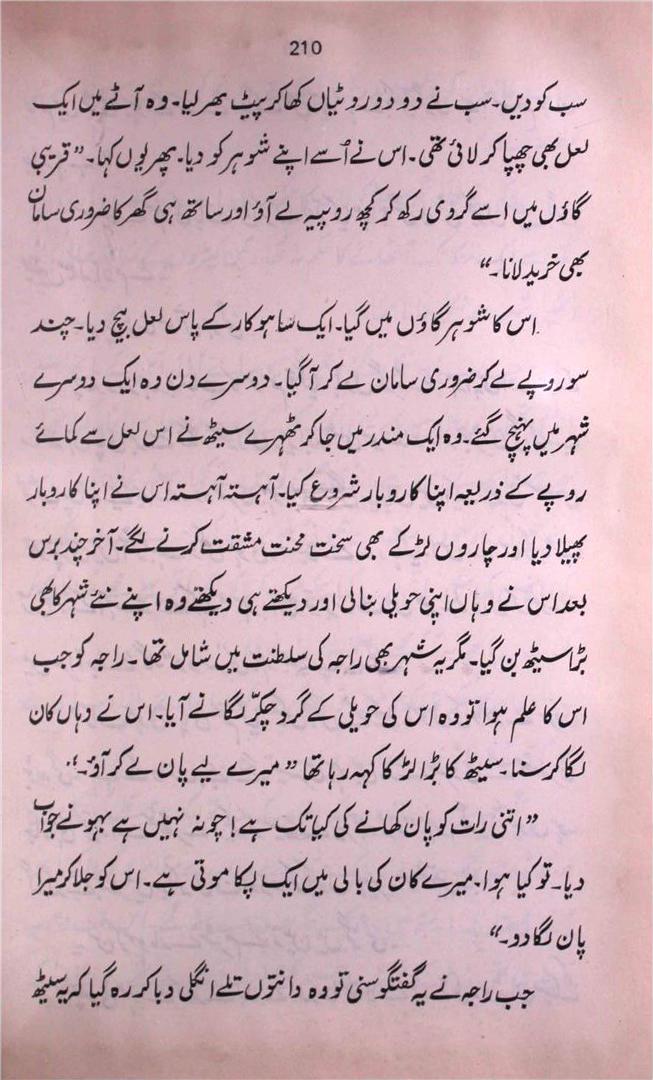 210
سب کو دیں۔ سب نے دو دو روٹیاں کھا کر پیٹ بھر لیا۔ وہ آٹے میں ایک
لعل بھی چھپا کر لائی تھی۔ اس نے اُسے اپنے شوہر کو دیا۔ پھر یوں کہا۔ ”قریبی
گاؤں میں اسے گروی رکھ کر کچھ روپیہ لے آؤ اور ساتھ ہی گھر کا ضروری سامان
بھی خرید لانا۔“
اس کا شوہر گاؤں میں گیا۔ ایک ساہوکار کے پاس لعل بیچ دیا۔ چند
سو روپے لے کر ضروری سامان لے کر آ گیا۔ دوسرے دن وہ ایک دوسرے
شہر میں پہنچ گئے۔ وہ ایک مندر میں جا کر ٹھہرے سیٹھ نے اس لعل سے کمائے
روپے کے ذریعہ اپنا کاروبار شروع کیا۔ آہستہ آہستہ اس نے اپنا کاروبار
پھیلا دیا اور چاروں لڑکے بھی سخت محنت مشقت کرنے لگے۔ آخر چند برس
بعد اس نے وہاں اپنی حویلی بنا لی اور دیکھتے ہی دیکھتے وہ اپنے نئے شہر کا بھی
بڑا سیٹھ بن گیا۔ مگر یہ شہر بھی راجہ کی سلطنت میں شامل تھا۔ راجہ کو جب
اس کا علم ہوا تو وہ اس کی حویلی کے گرد چکّر لگانے آیا۔ اس نے وہاں کان
لگا کر سنا۔ سیٹھ کا بڑا لڑکا کہہ رہا تھا ”میرے لیے پان لے کر آؤ۔“
”اتنی رات کو پان کھانے کی کیا تک ہے! چونہ نہیں ہے بہو نے جواب
دیا۔ تو کیا ہوا۔ میرے کان کی بالی میں ایک پکا موتی ہے۔ اس کو جلا کر میرا
پان لگا دو۔“
جب راجہ نے یہ گفتگو سنی تو وہ دانتوں تلے انگلی دبا کر رہ گیا کہ یہ سیٹھ